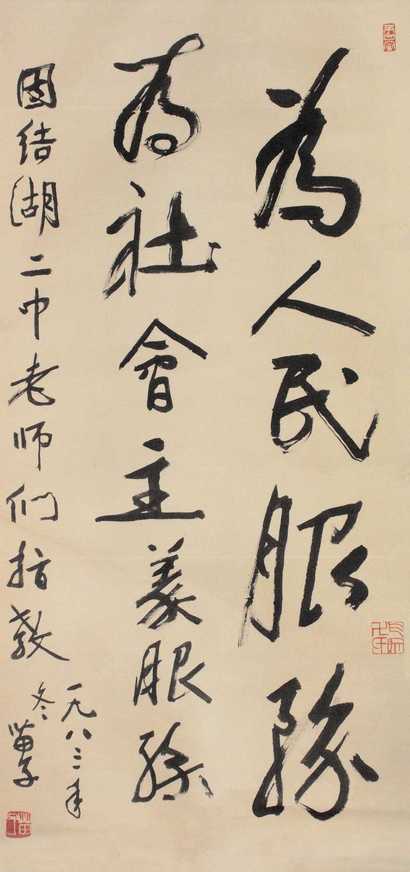 為人民服务
为社會主義服务
团结湖二中老师们指教
一九八三年
冬 苗子